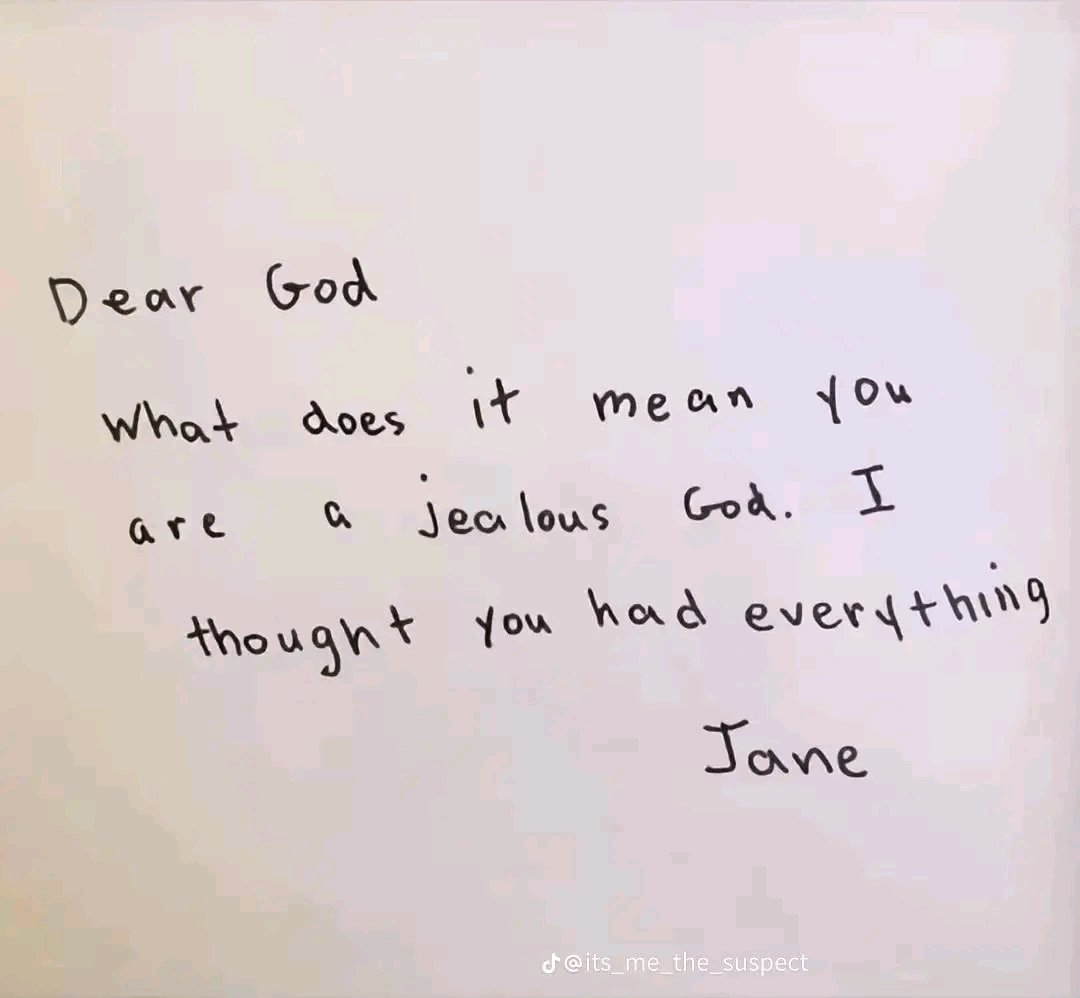 Dear God
what does it mean you
are a jealous God. I
thought you had everything
Jane
@its_me_the_suspect